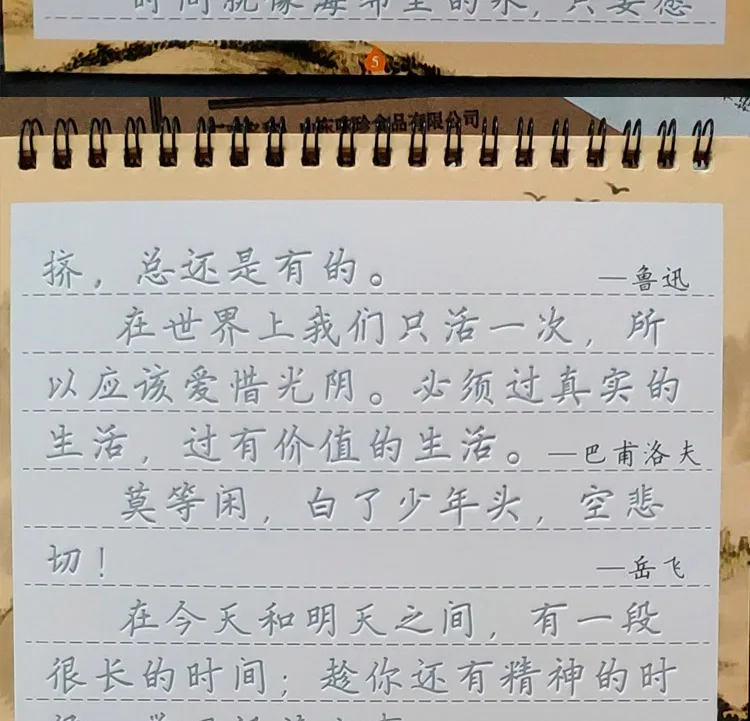 时间就像海绵里的水，只要愿
5
味珍食品有限公司
挤，总还是有的。 —鲁迅
在世界上我们只活一次，所
以应该爱惜光阴。必须过真实的
生活，过有价值的生活。—巴甫洛夫
莫等闲，白了少年头，空悲
切！ —岳飞
在今天和明天之间，有一段
很长的时间；趁你还有精神的时